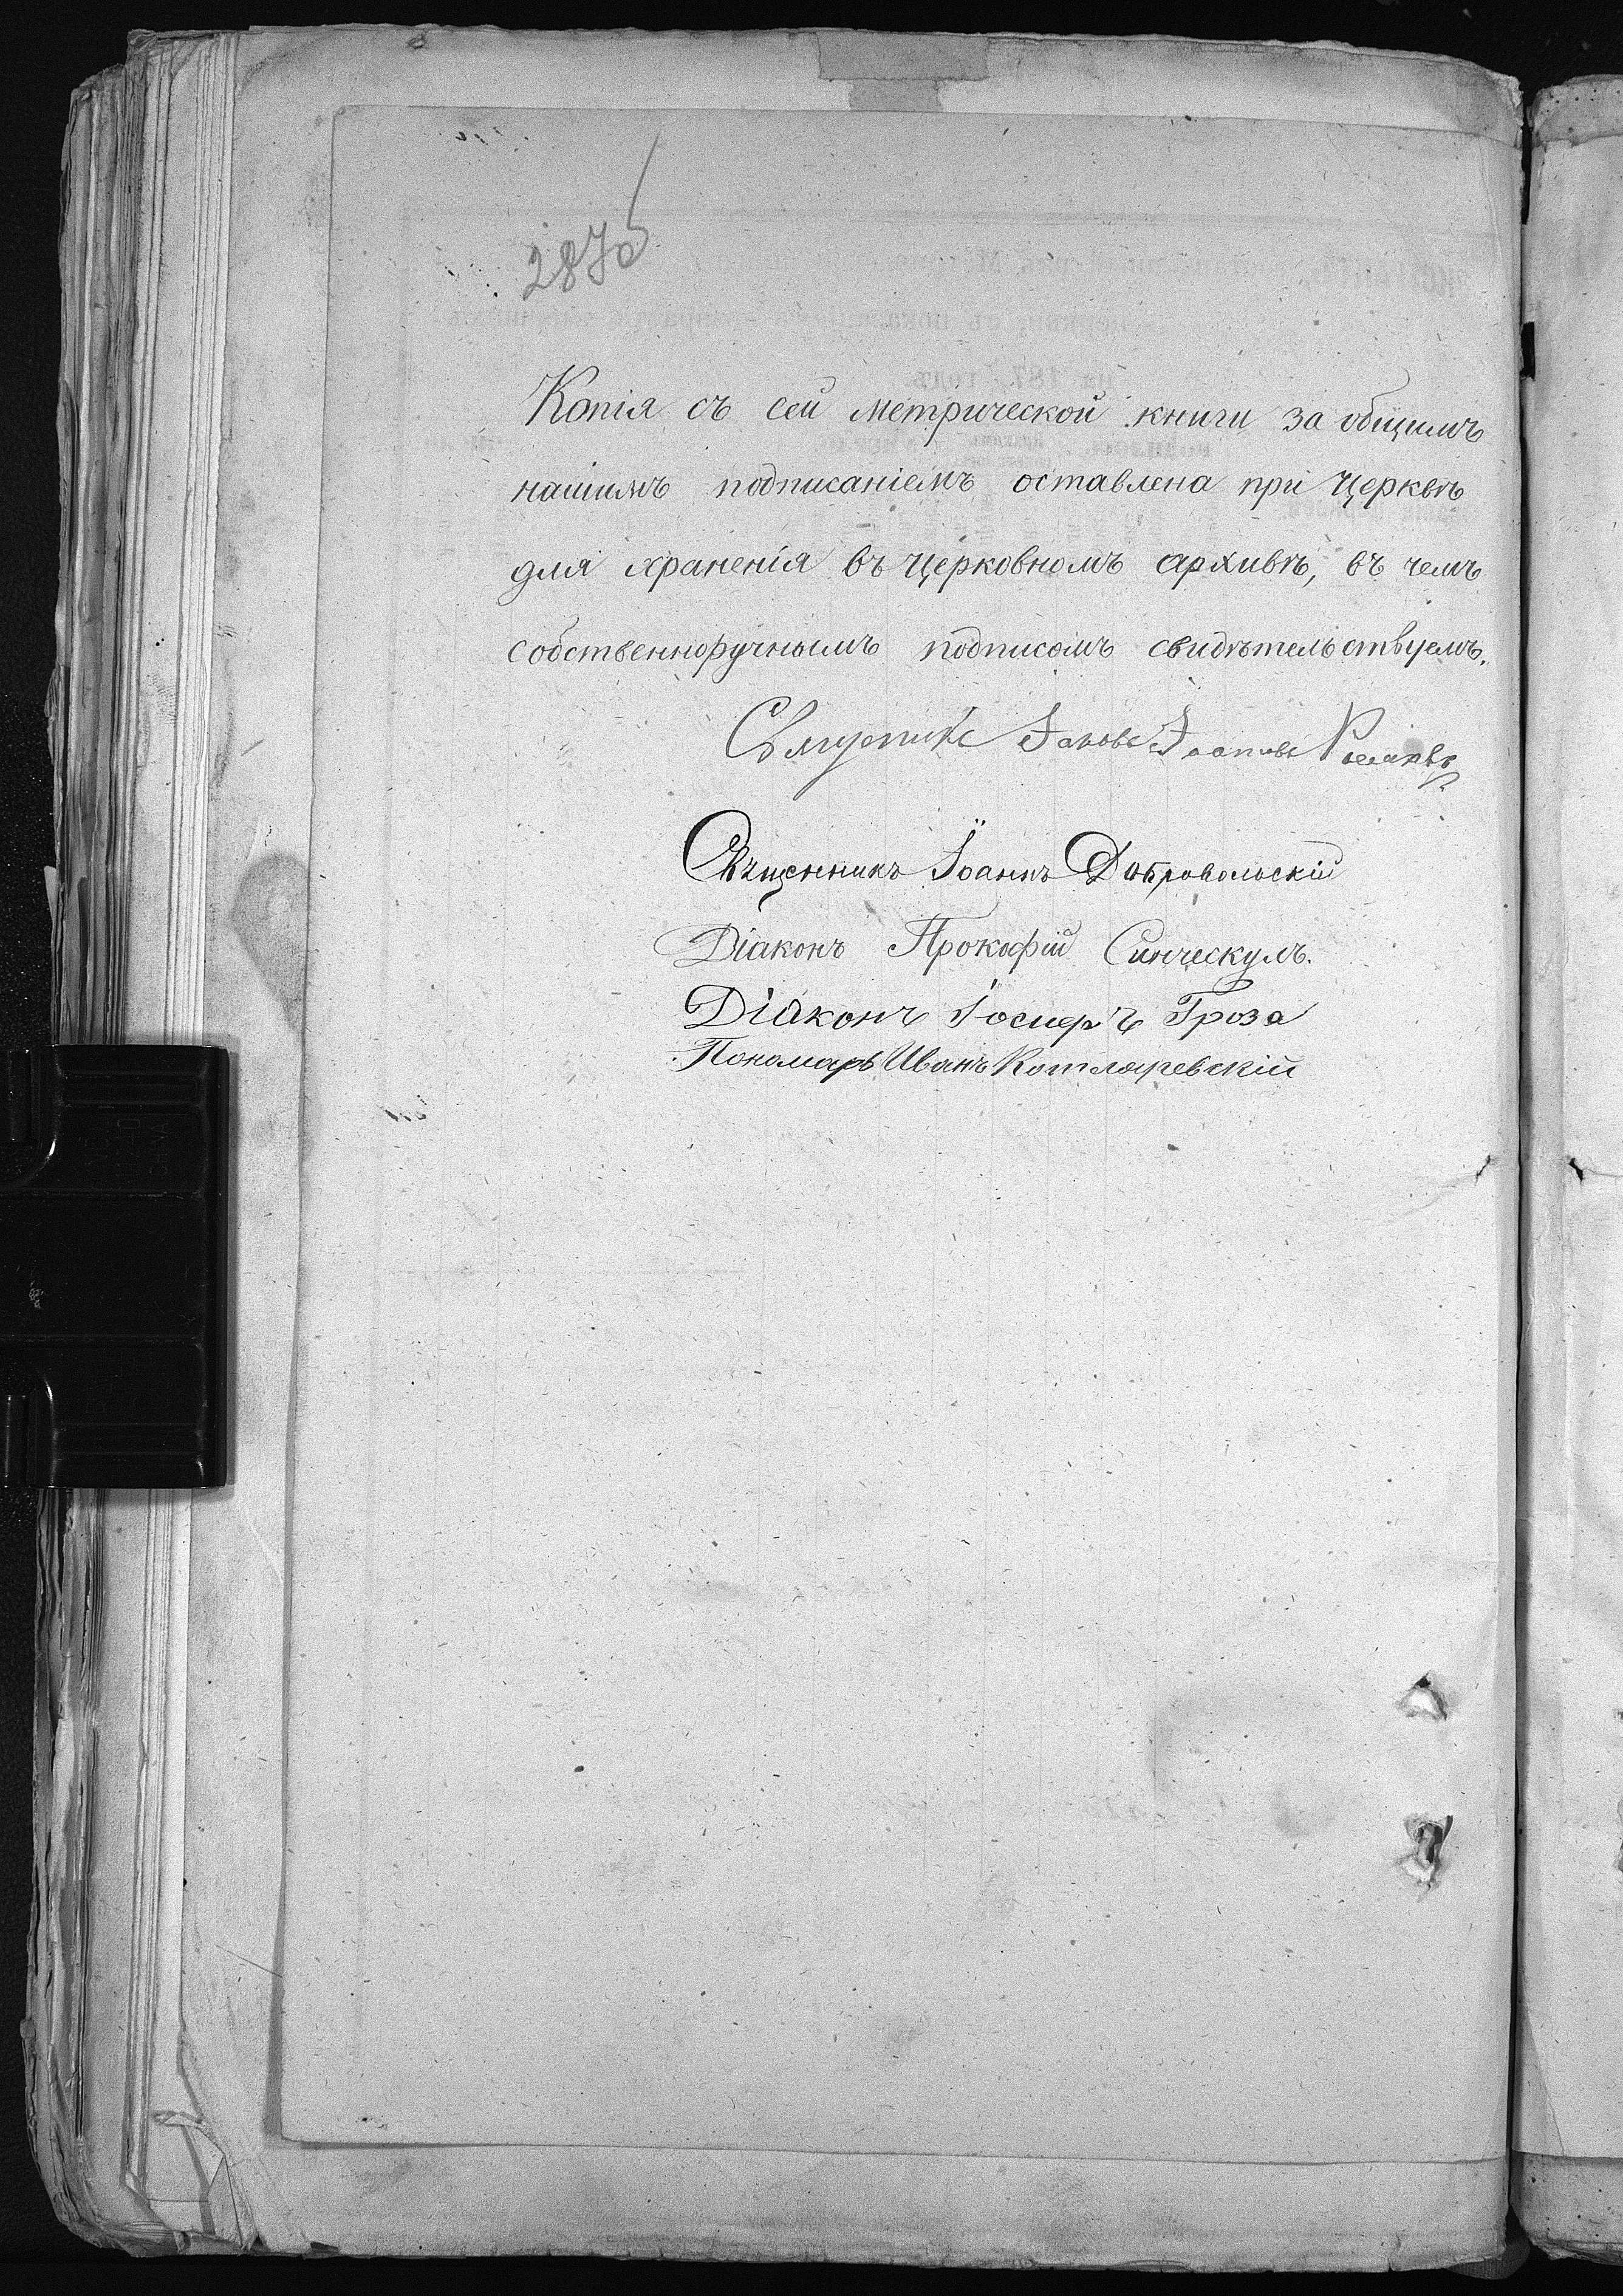 287об
Копія съ сей метрической книги за общимъ
нашимъ подписаніемъ оставлена при Церквѣ
для храненія въ церковномъ архивѣ, въ чемъ
собственноручнымъ подписомъ свидѣтельствуемъ.
Іаковъ
Священникъ Іоаннъ Добровольскій
Діаконъ Прокофій Синческулъ.
Діаконъ Іосифъ Гроза
Пономарь Иванъ Котляревскій